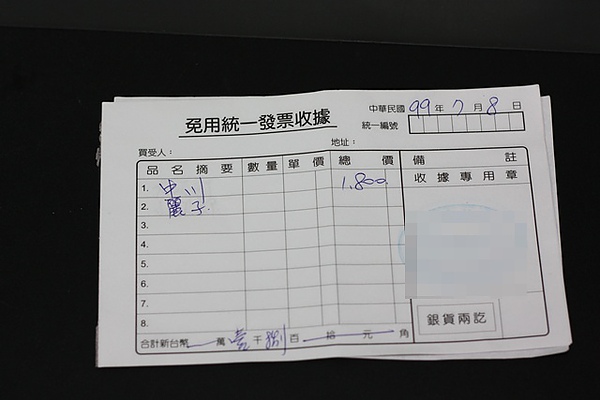 免用統一發票收據
中華民國 99 年 7 月 8 日
統一編號
買受人： 地址：
品名摘要 數量 單價 總價 備註
1. 中川 1,800. 收據專用章
2. 麗子.
3.
4.
5.
6.
7.
8. 銀貨兩訖
合計新台幣 萬 壹 千 捌 百 拾 元 角